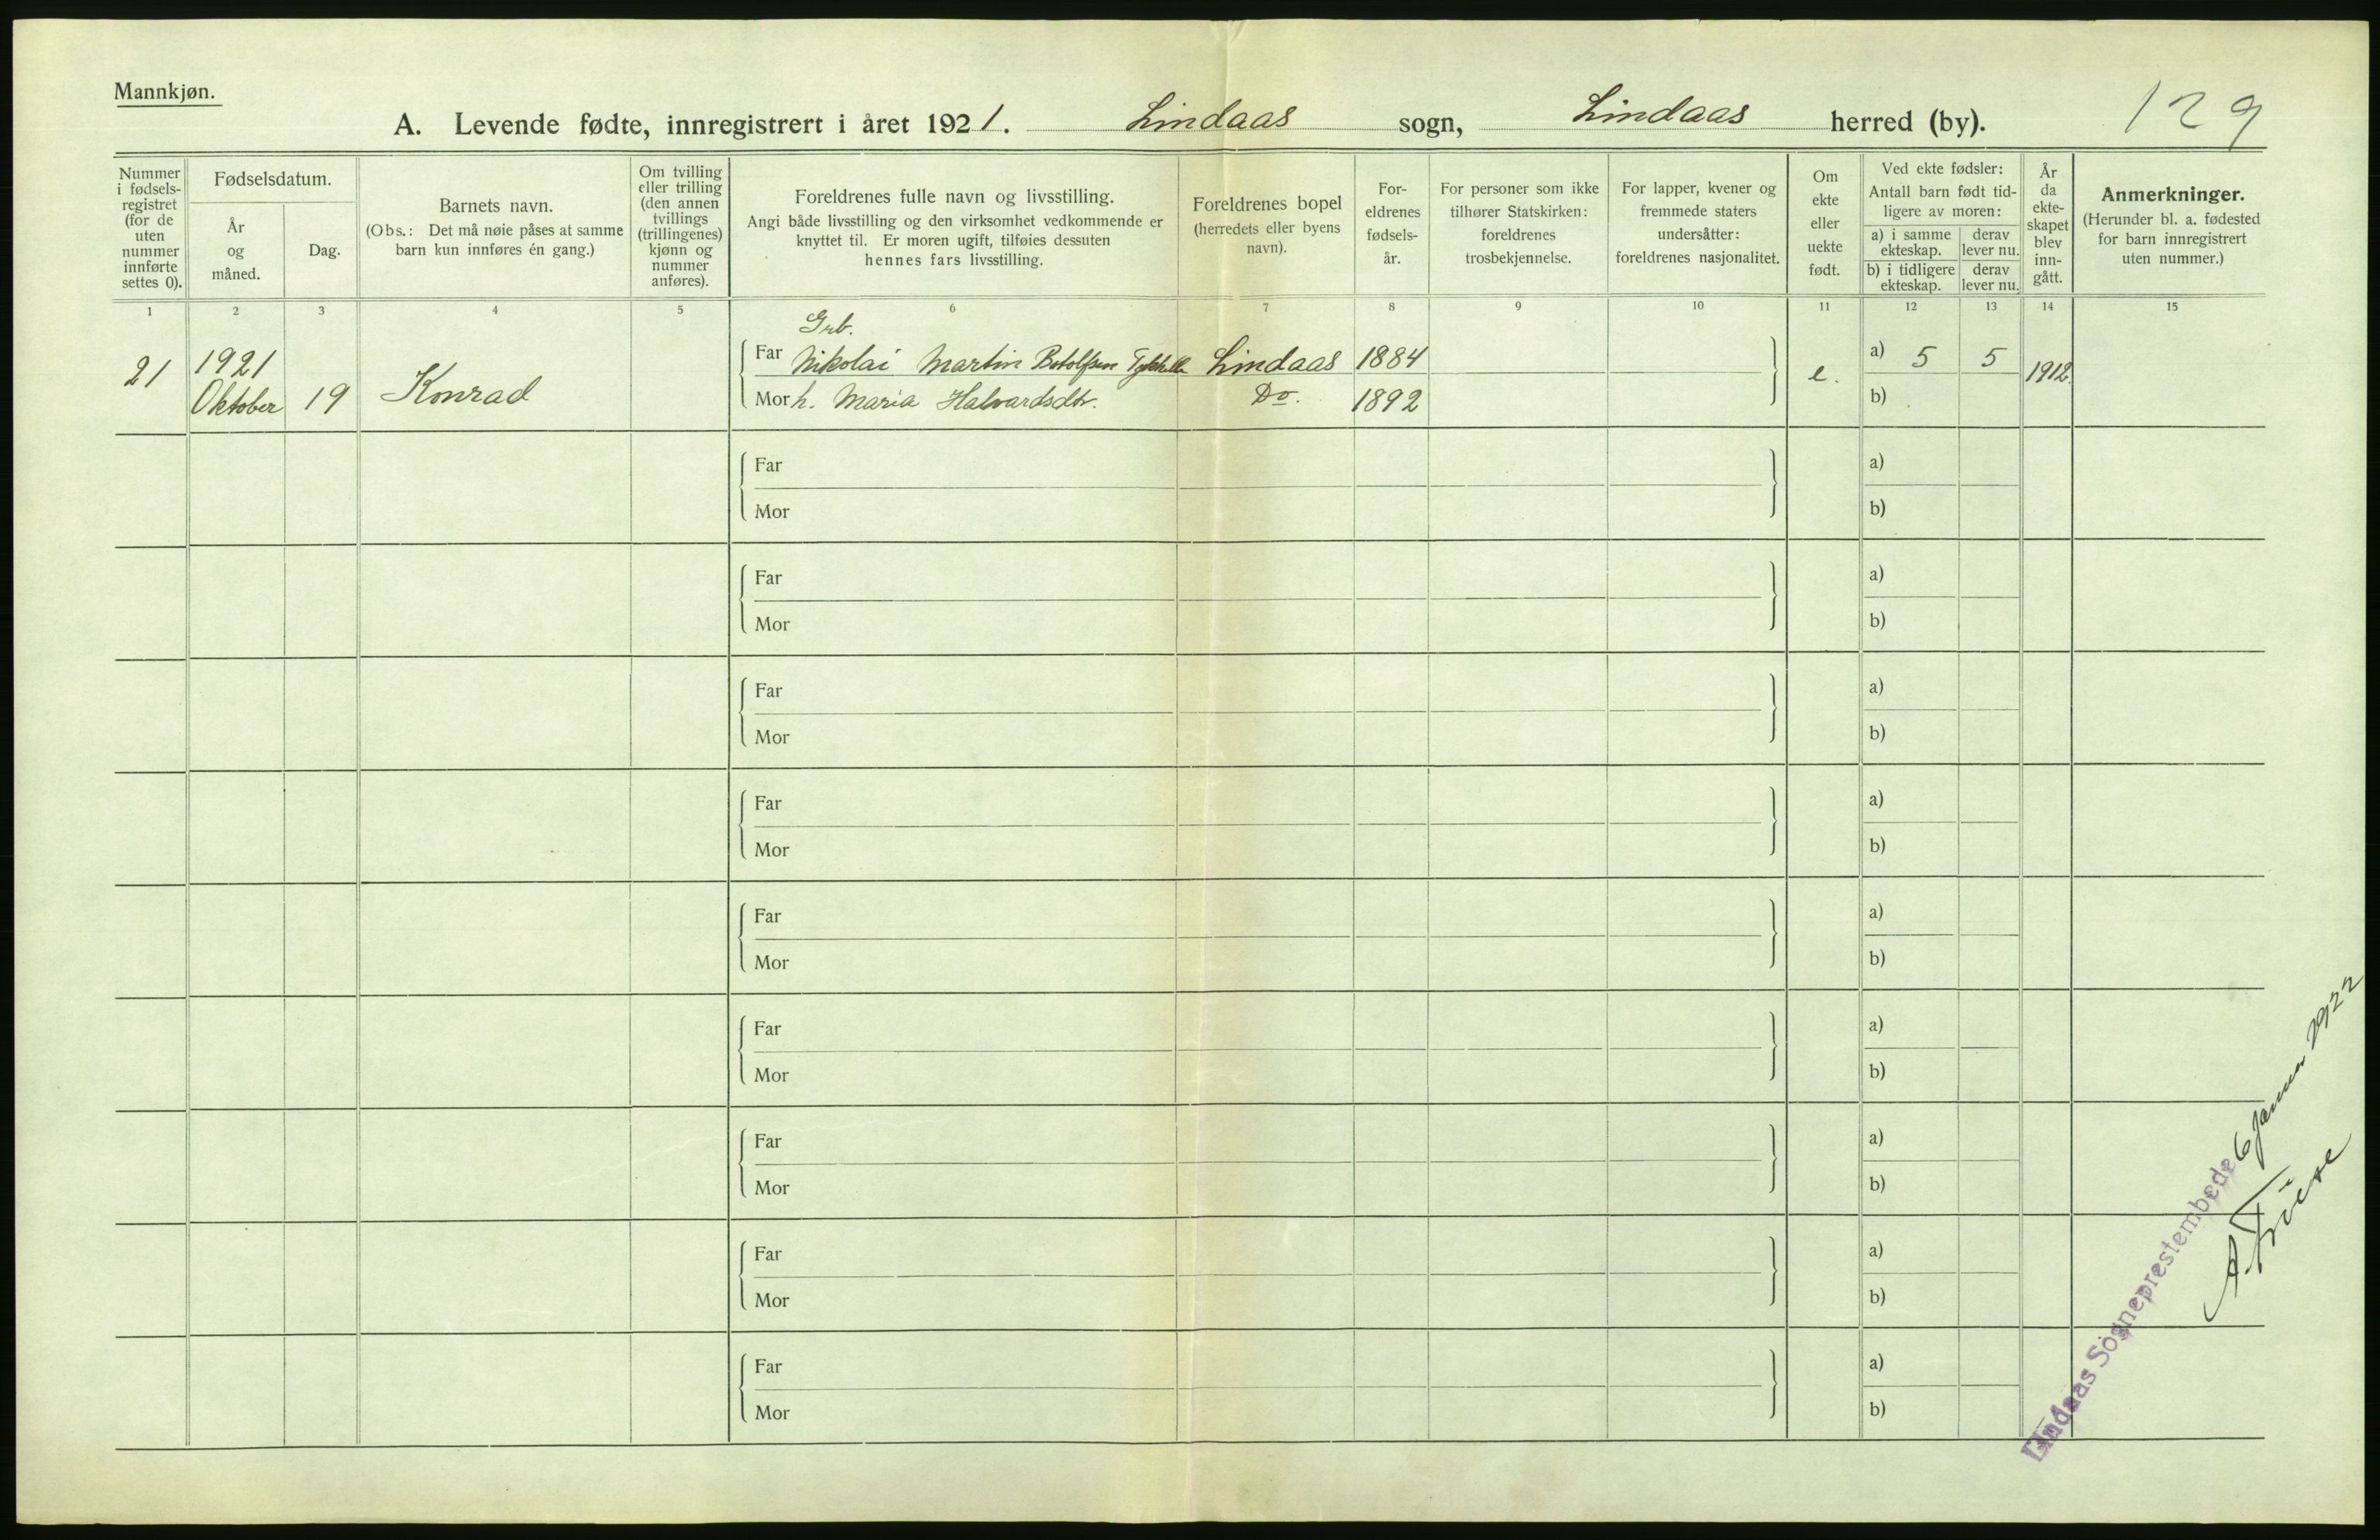 Mannkjøn.
A. Levende fødte, innregistrert i året 1921. Lindaas sogn, Lindaas herred (by). 129
Nummer
i fødsels-
registret
(for de
uten
nummer
innførte
settes 0).
Fødselsdatum.
År
og
måned.
Dag.
Barnets navn.
(Obs.: Det må nøie påses at samme
barn kun innføres én gang.)
Om tvilling
eller trilling
(den annen
tvillings
(trillingenes)
kjønn og
nummer
anføres).
Foreldrenes fulle navn og livsstilling.
Angi både livsstilling og den virksomhet vedkommende er
knyttet til. Er moren ugift, tilføies dessuten
hennes fars livsstilling.
Foreldrenes bopel
(herredets eller byens
navn).
For-
eldrenes
fødsels-
år.
For personer som ikke
tilhører Statskirken:
foreldrenes
trosbekjennelse.
For lapper, kvener og
fremmede staters
undersåtter:
foreldrenes nasjonalitet.
Om
ekte
eller
uekte
født.
Ved ekte fødsler:
Antall barn født tid-
ligere av moren:
a) i samme
ekteskap.
derav
lever nu.
b) i tidligere
ekteskap.
derav
lever nu.
År
da
ekte-
skapet
blev
inn-
gått.
Anmerkninger.
(Herunder bl. a. fødested
for barn innregistrert
uten nummer.)
1 2 3 4 5 6 7 8 9 10 11 12 13 14 15
Grb.
21 1921 Far Nikolai Martin Botolfsen Lindaas 1884 e. a) 5 5 1912
Oktober 19 Konrad Mor h. Maria Halvardsdtr. Do. 1892 b)
Far a)
Mor b)
Far a)
Mor b)
Far a)
Mor b)
Far a)
Mor b)
Far a)
Mor b)
Far a)
Mor b)
Far a)
Mor b)
Far a)
Mor b)
Far a)
Mor b)
Lindaas Sogneprestembede 6 Januar 1922